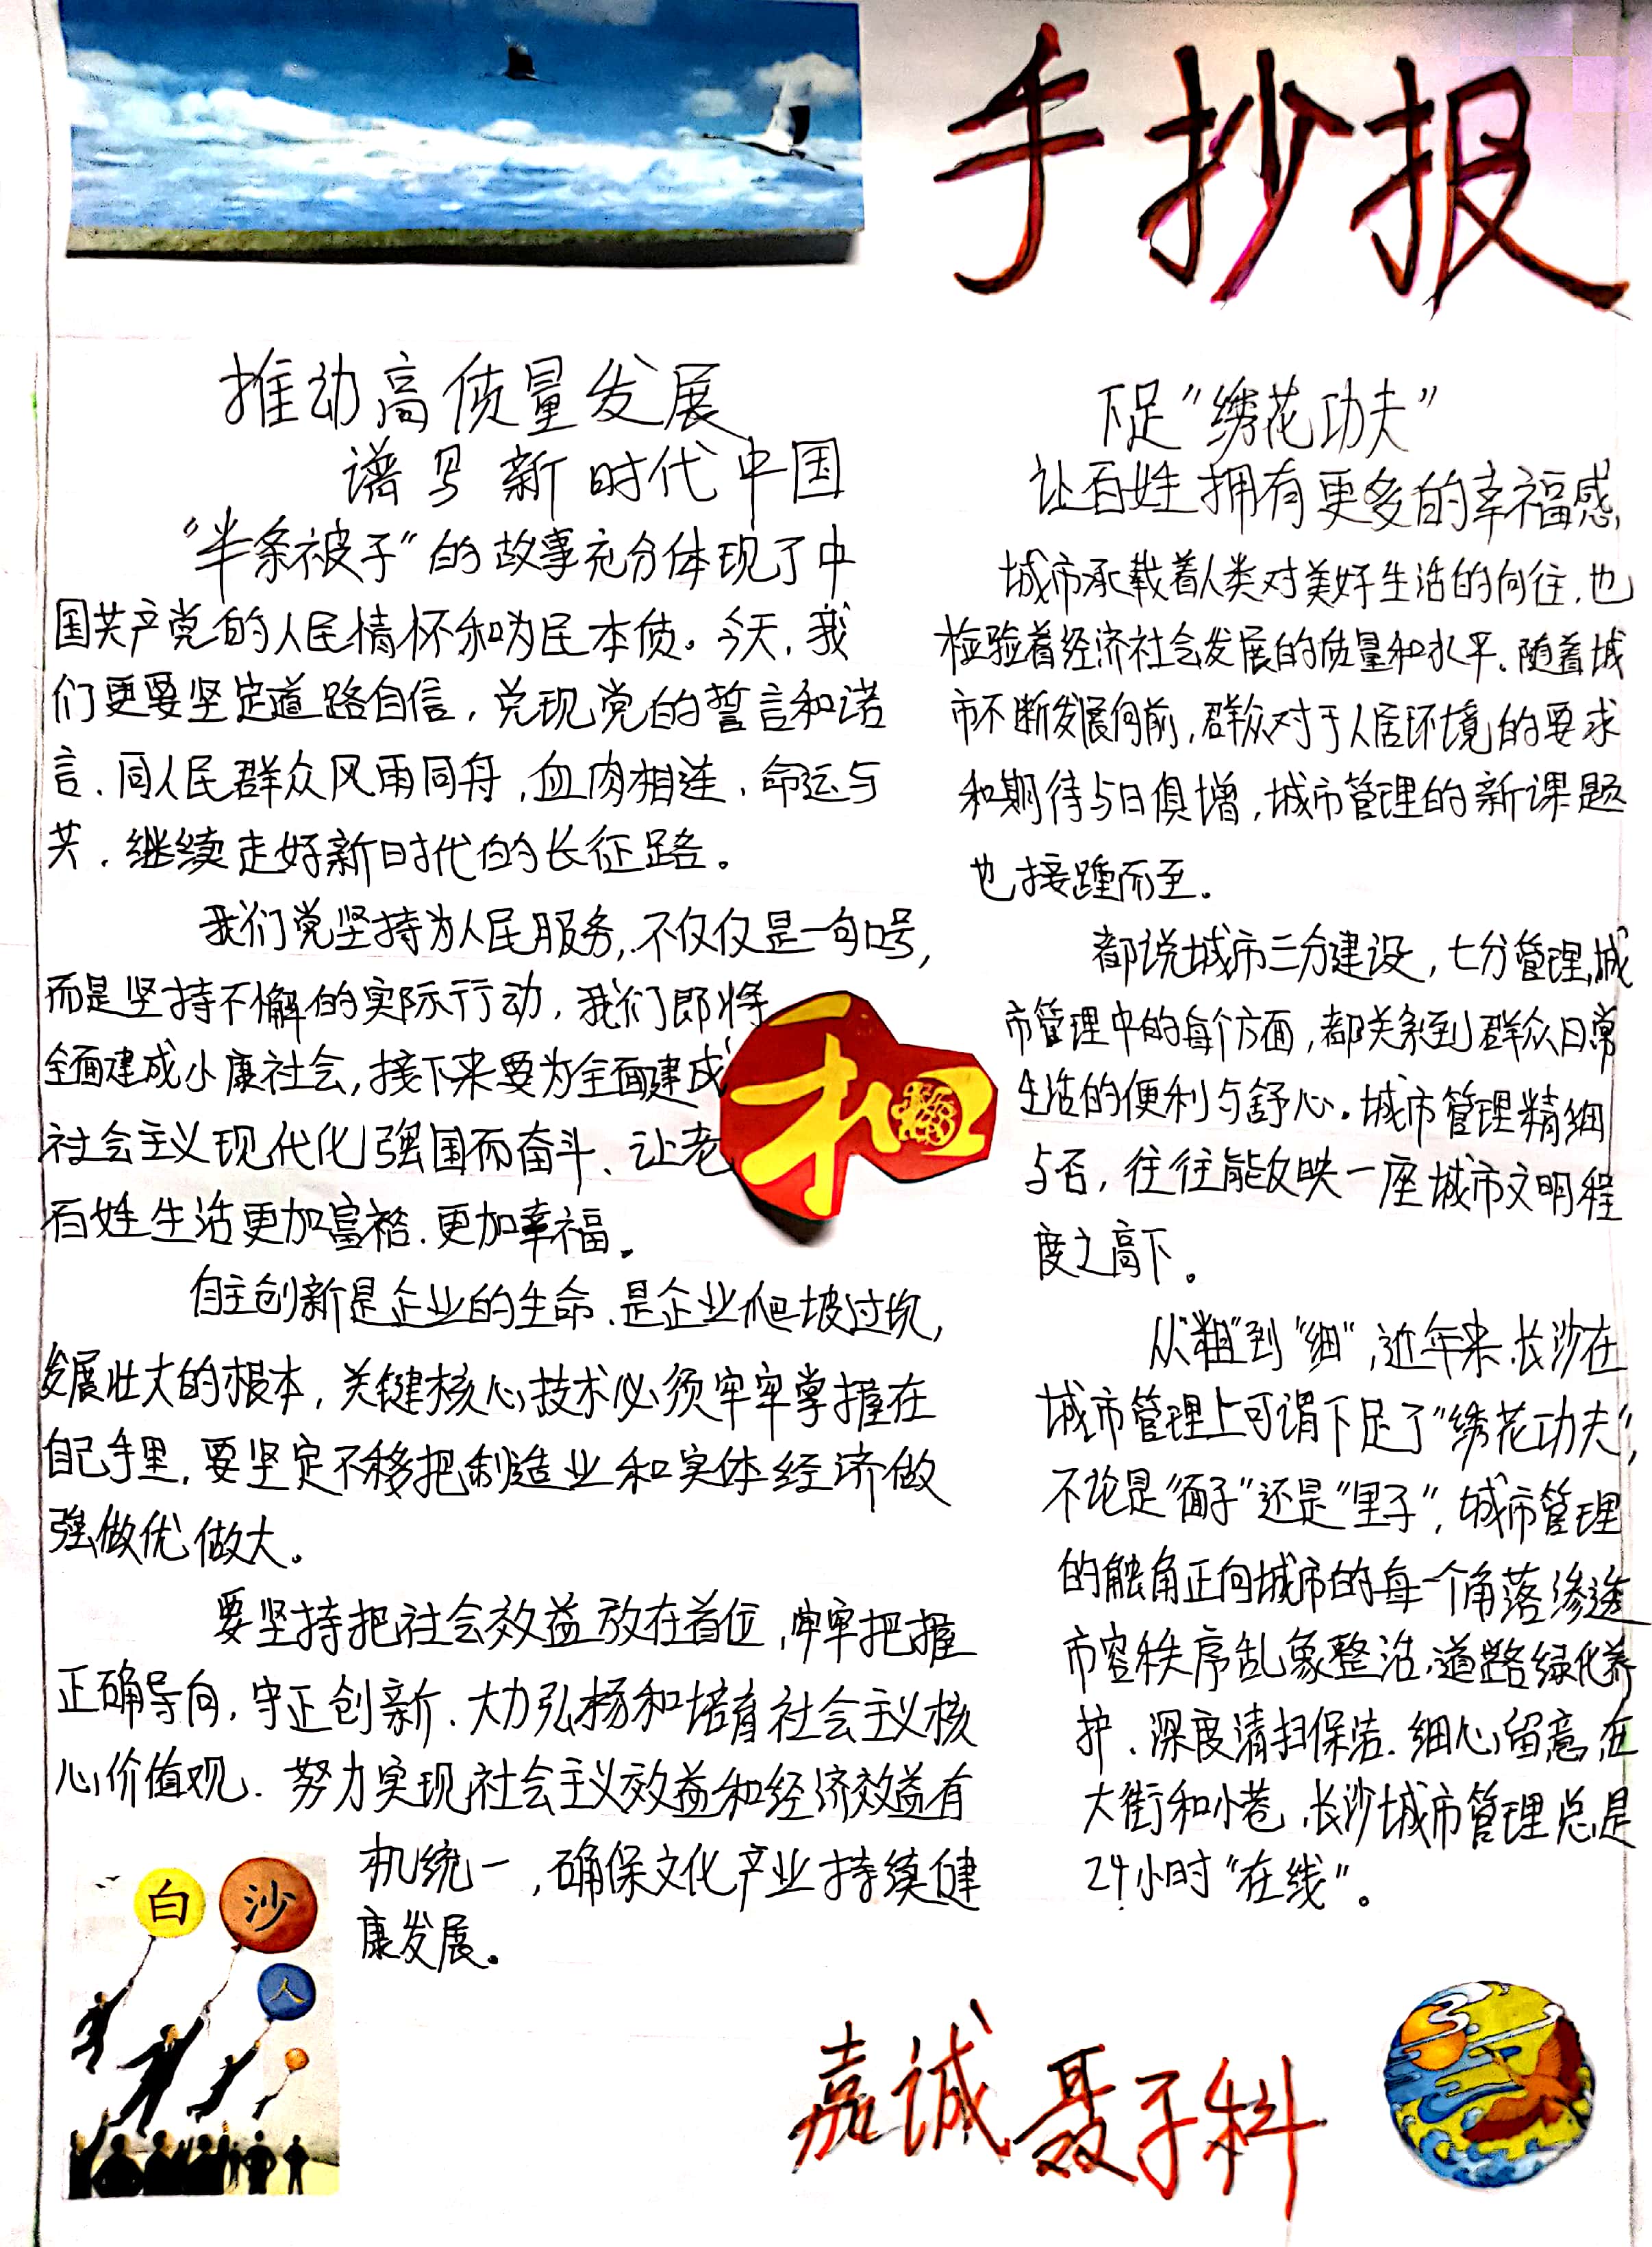 手抄报
推动高质量发展
谱写新时代中国
“半条被子”的故事充分体现了中
国共产党的人民情怀和为民本质。今天,我
们更要坚定道路自信,兑现党的誓言和诺
言、同人民群众风雨同舟,血肉相连、命运与
共,继续走好新时代的长征路。
我们党坚持为人民服务,不仅仅是一句口号,
而是坚持不懈的实际行动,我们即将
全面建成小康社会,接下来要为全面建成
社会主义现代化强国而奋斗、让老
百姓生活更加富裕、更加幸福。
自主创新是企业的生命、是企业爬坡过坎,
发展壮大的根本,关键核心技术必须牢牢掌握在
自己手里,要坚定不移把制造业和实体经济做
强做优做大。
要坚持把社会效益放在首位,牢牢把握
正确导向,守正创新、大力弘扬和培育社会主义核
心价值观、努力实现社会主义效益和经济效益有
机统一,确保文化产业持续健
康发展。
和
福
白
沙
人
下足“绣花功夫”
让百姓拥有更多的幸福感
城市承载着人类对美好生活的向往,也
检验着经济社会发展的质量和水平。随着城
市不断发展向前,群众对于人居环境的要求
和期待与日俱增,城市管理的新课题
也接踵而至。
都说城市三分建设,七分管理,城
市管理中的每个方面,都关系到群众日常
生活的便利与舒心。城市管理精细
与否,往往能反映一座城市文明程
度之高下。
从“粗”到“细”,近年来、长沙在
城市管理上可谓下足了“绣花功夫”,
不论是“面子”还是“里子”,城市管理
的触角正向城市的每一个角落渗透
市容秩序乱象整治、道路绿化养
护、深度清扫保洁、细心留意,在
大街和小巷,长沙城市管理总是
24小时“在线”。
嘉诚 聂子科